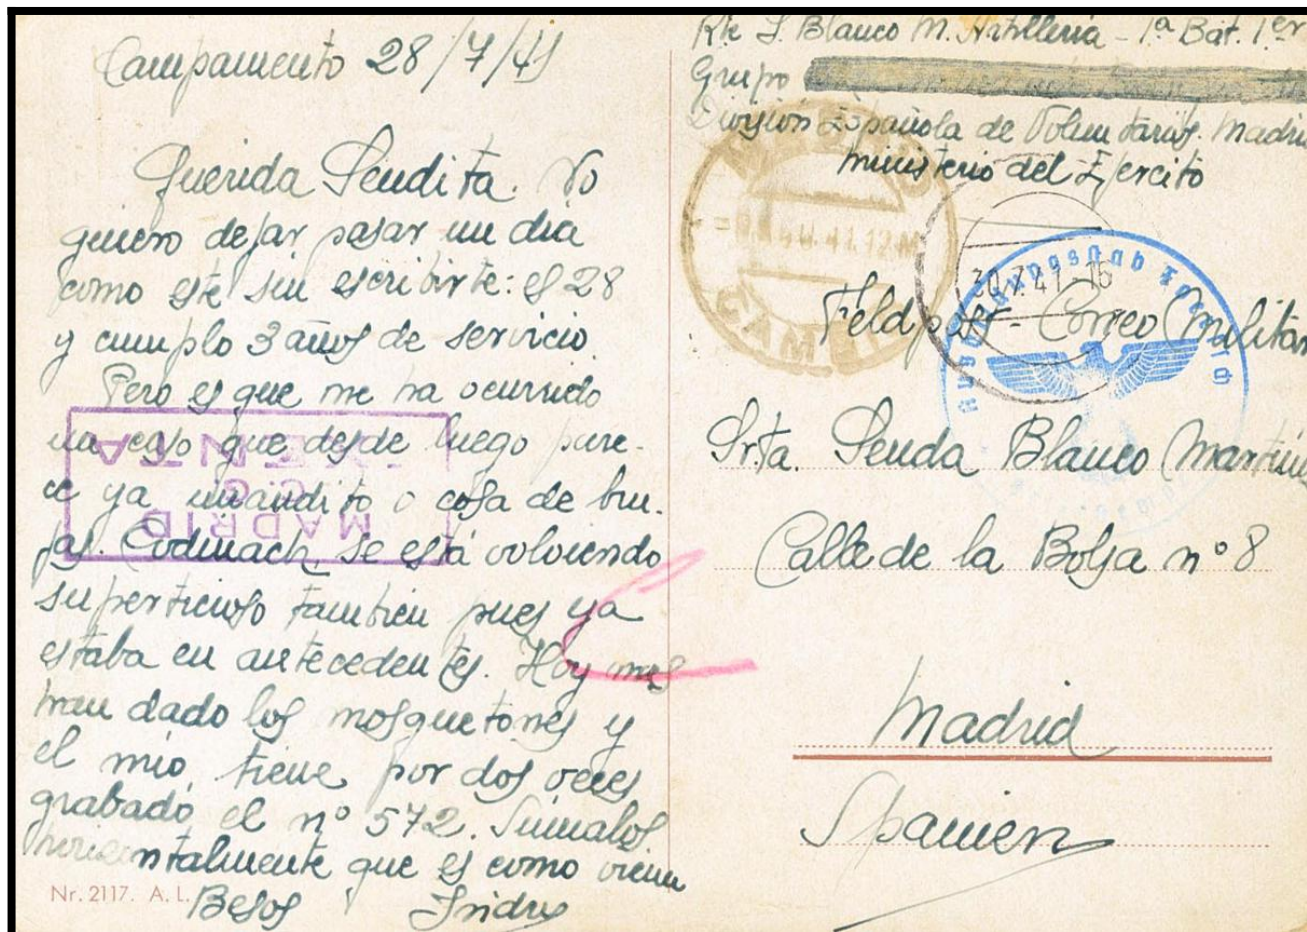 Campamento 28/7/41
Querida Sendita. No
quiero dejar pasar un dia
como este sin escribirte: es 28
y cumplo 3 años de servicio.
Pero es que me ha ocurrido
un caso que desde luego pare-
ce ya inaudito o cosa de bru-
jas. Codinach, se está volviendo
supersticioso tambien pues ya
estaba en antecedentes. Hoy nos
han dado los mosquetones y
el mio, tiene por dos veces
grabado el nº 572. Sumalos
horizontalmente que es como viene
Besos Isidro
Nr. 2117. A. L.
Rte I. Blanco M. Artilleria - 1ª Bat. 1er
Grupo
División Española de Voluntarios. Madrid
Ministerio del Ejercito
Feldpost - Correo Militar
Srta. Senda Blanco Martin
Calle de la Bolsa nº 8
Madrid
Spanien
30.7.41-16
MADRID